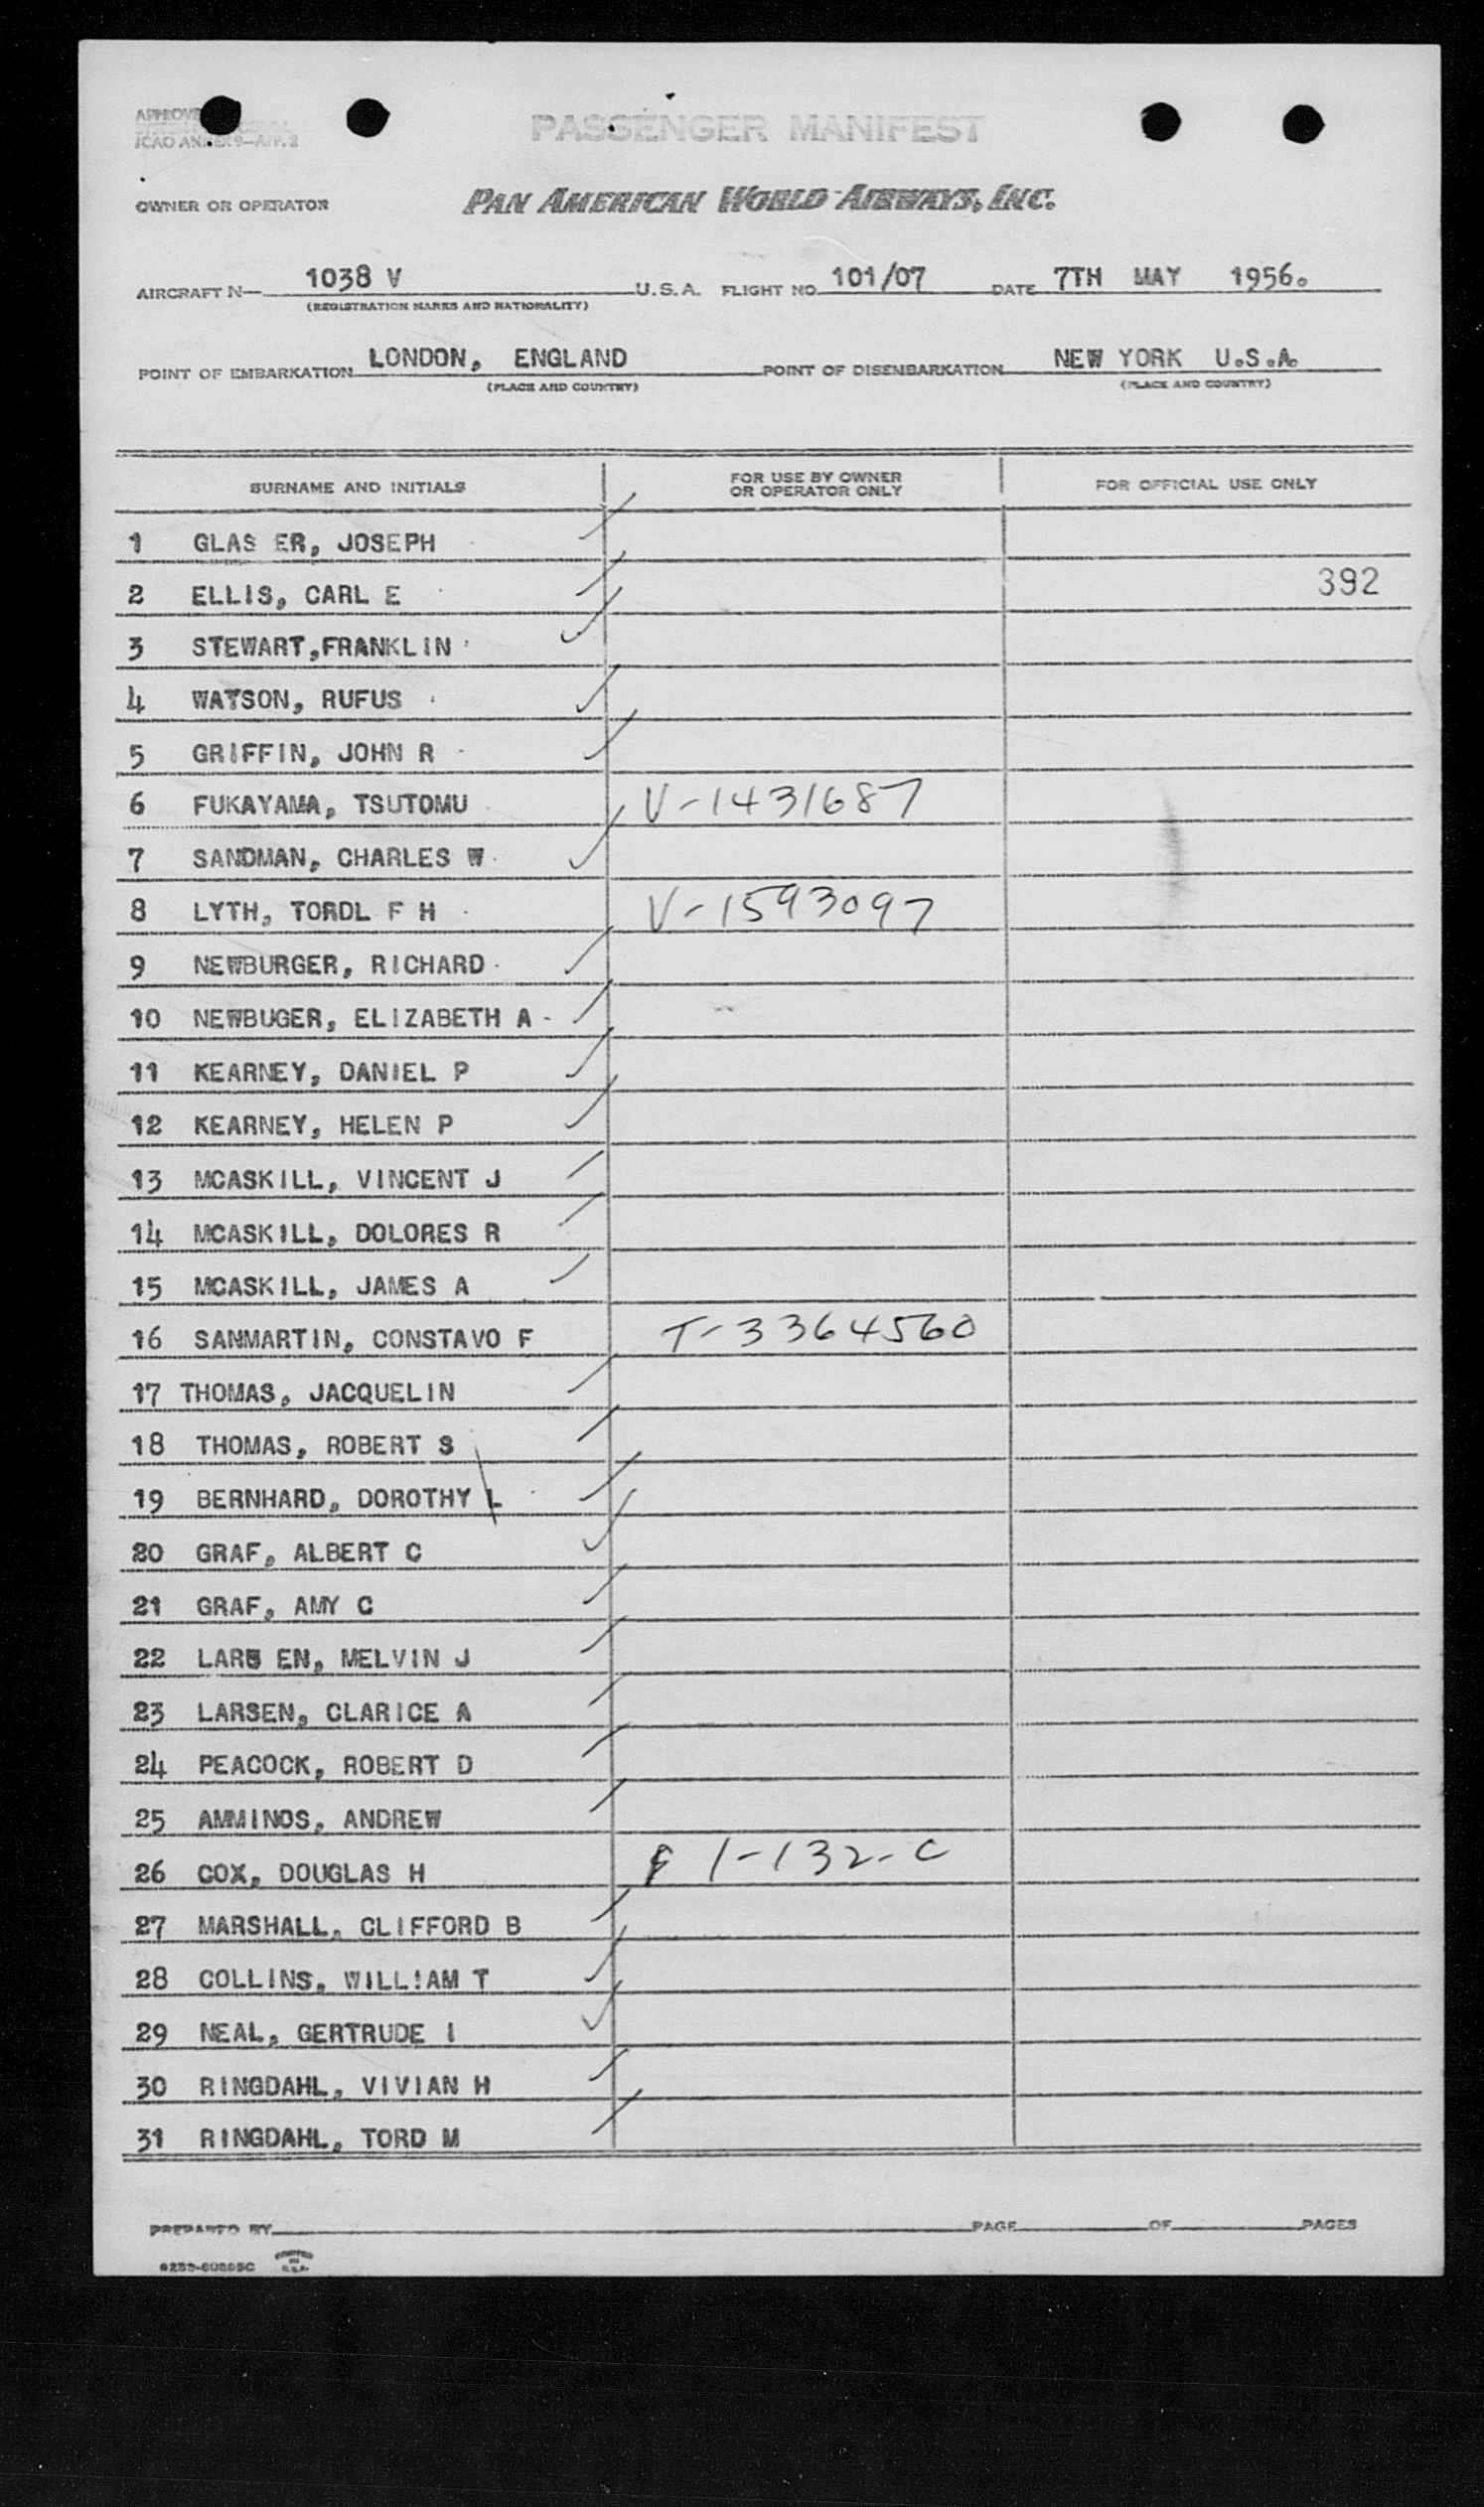 APPROVED
ICAO ANNEX 9-APP. 2
PASSENGER MANIFEST
OWNER OR OPERATOR PAN AMERICAN WORLD AIRWAYS, INC.
AIRCRAFT N— 1038 V U.S.A. FLIGHT NO. 101/07 DATE 7TH MAY 1956.
(REGISTRATION MARKS AND NATIONALITY)
POINT OF EMBARKATION LONDON, ENGLAND POINT OF DISEMBARKATION NEW YORK U.S.A.
(PLACE AND COUNTRY) (PLACE AND COUNTRY)
SURNAME AND INITIALS FOR USE BY OWNER OR OPERATOR ONLY FOR OFFICIAL USE ONLY
1 GLAS ER, JOSEPH
2 ELLIS, CARL E 392
3 STEWART,FRANKLIN
4 WATSON, RUFUS
5 GRIFFIN, JOHN R
6 FUKAYAMA, TSUTOMU V-1431687
7 SANDMAN, CHARLES W
8 LYTH, TORDL F H V-1593097
9 NEWBURGER, RICHARD
10 NEWBUGER, ELIZABETH A
11 KEARNEY, DANIEL P
12 KEARNEY, HELEN P
13 MCASKILL, VINCENT J
14 MCASKILL, DOLORES R
15 MCASKILL, JAMES A
16 SANMARTIN, CONSTAVO F T-3364560
17 THOMAS, JACQUELIN
18 THOMAS, ROBERT S
19 BERNHARD, DOROTHY L
20 GRAF, ALBERT C
21 GRAF, AMY C
22 LARS EN, MELVIN J
23 LARSEN, CLARICE A
24 PEACOCK, ROBERT D
25 AMMINOS, ANDREW
26 COX, DOUGLAS H 1-132-C
27 MARSHALL, CLIFFORD B
28 COLLINS, WILLIAM T
29 NEAL, GERTRUDE I
30 RINGDAHL, VIVIAN H
31 RINGDAHL, TORD M
PREPARED BY PAGE OF PAGES